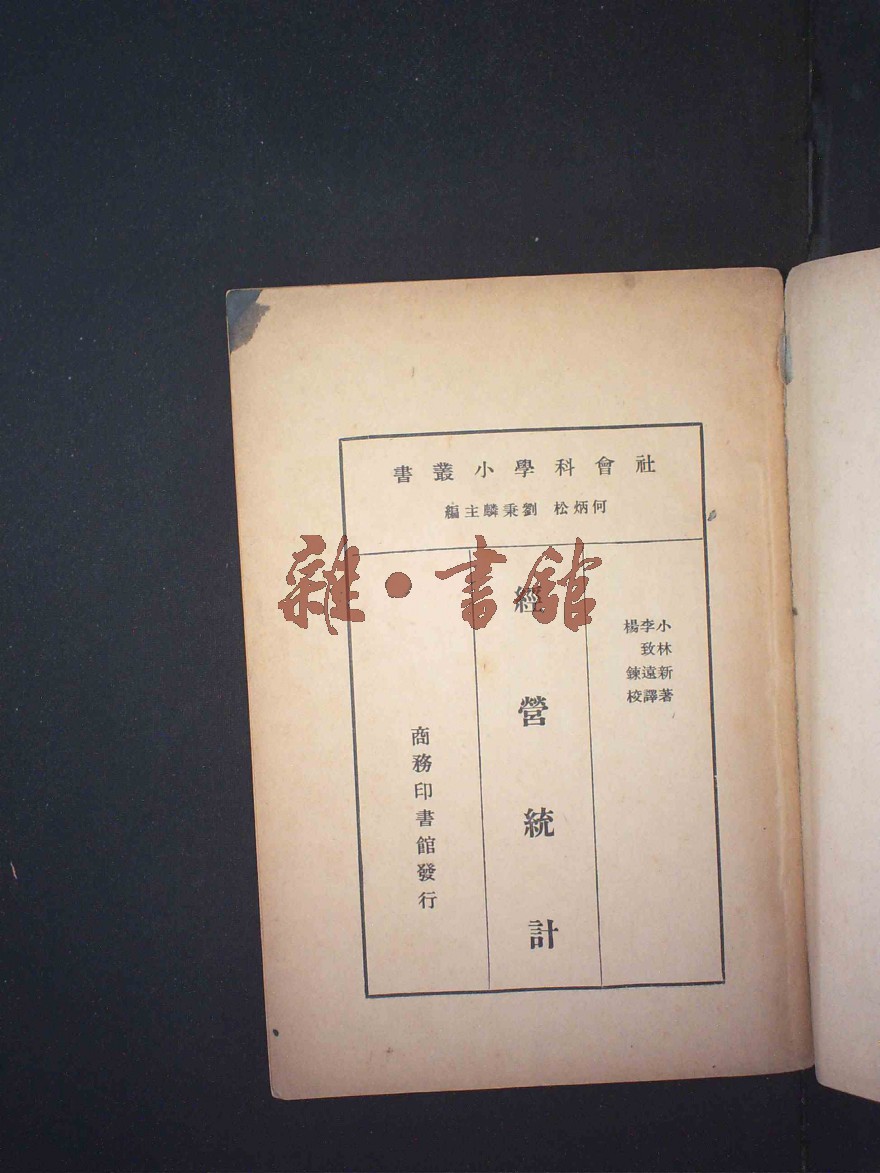 社會科學小叢書
何炳松 劉秉麟主編
小林新著
李致遠譯
楊鍊校
經營統計
商務印書館發行
雜·書館